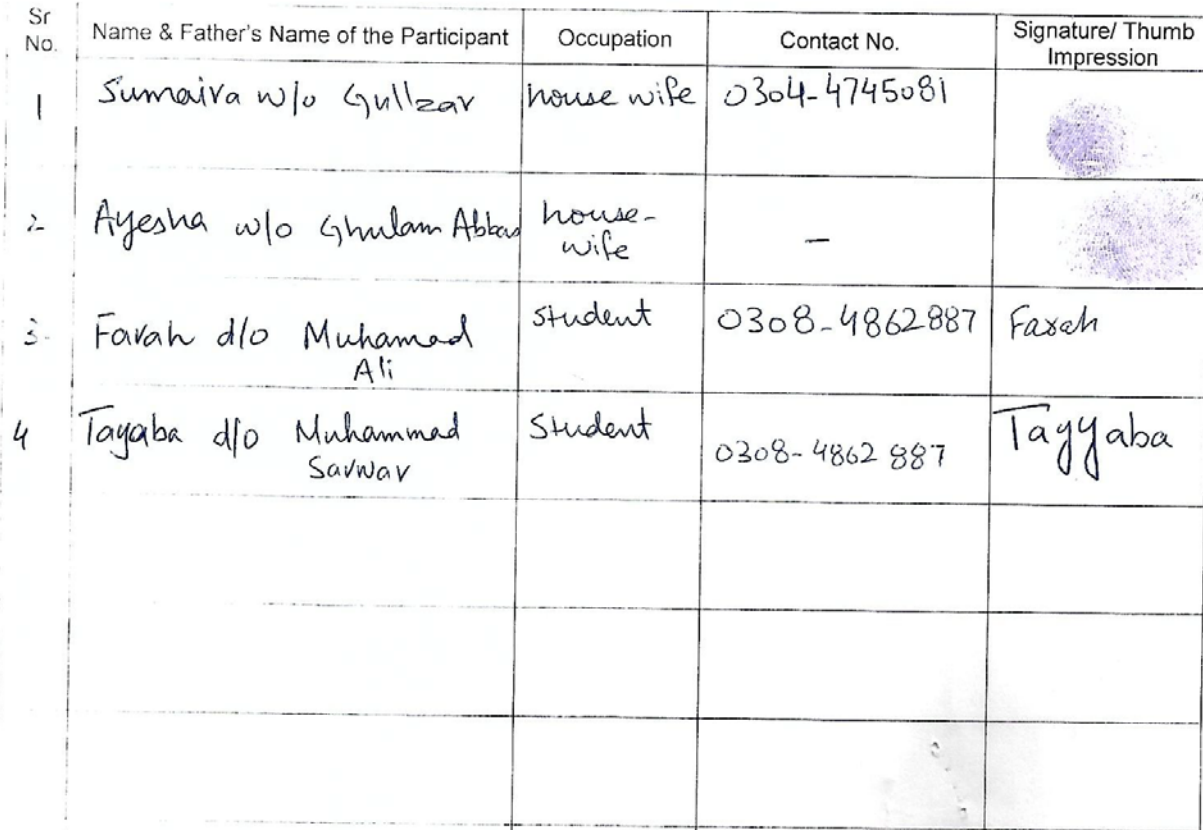 Sr No. Name & Father's Name of the Participant Occupation Contact No. Signature/ Thumb Impression
1 Sumaira w/o Gullzar house wife 0304-4745081
2- Ayesha w/o Ghulam Abbas house-wife –
3- Farah d/o Muhamad Ali student 0308-4862887 Farah
4 Tayaba d/o Muhammad Sarwar Student 0308-4862887 Tayyaba